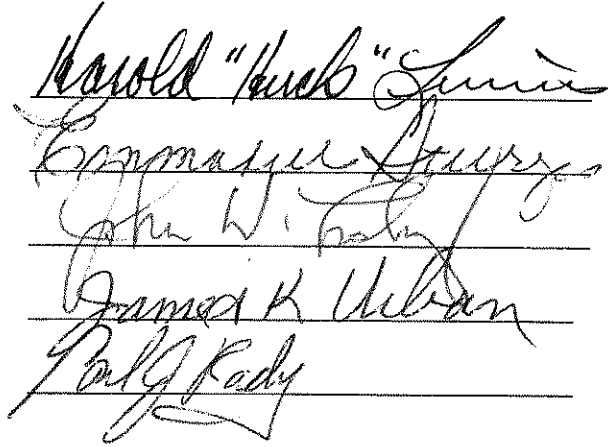 Harold "Huck"
Emmanuel
John W.
James K Urban
Paul J Rady